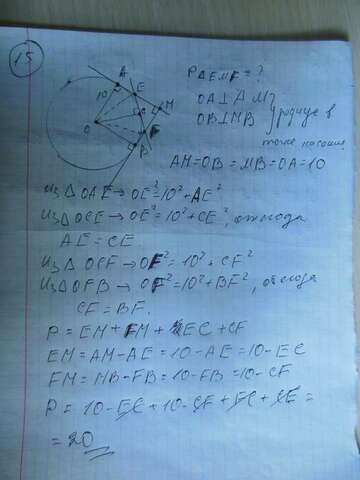 15
P△EMF = ?
OA⊥AM
OB⊥MB } радиус в
точке касания.
AM=OB=MB=OA=10
Из △ OAE → OE²=10²+AE²
Из △ OCE → OE²=10²+CE², отсюда
AE=CE.
Из △ OCF → OF²=10²+CF²
Из △ OFB → OF²=10²+BF², отсюда
CF=BF.
P = EM+FM+EC+CF
EM=AM-AE=10-AE=10-EC
FM=MB-FB=10-FB=10-CF
P = 10-EC+10-CF+FC+CE=
=20
A
10
E
M
C
O
F
B